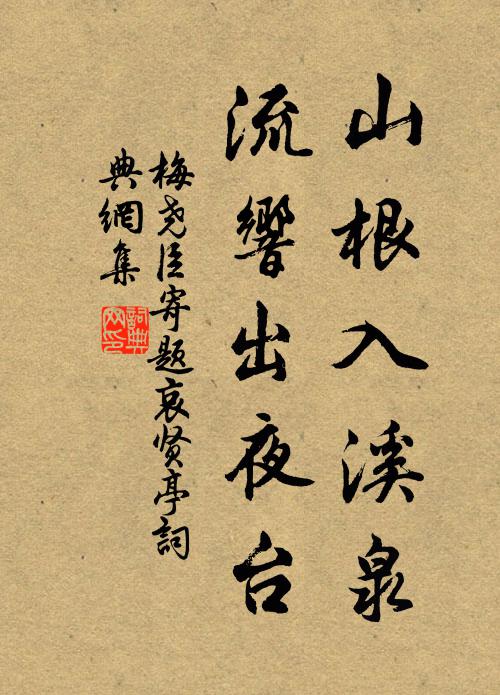 山根入溪泉
流響出夜台
梅尧臣寄题哀贤亭詞
典網集
詞典网印